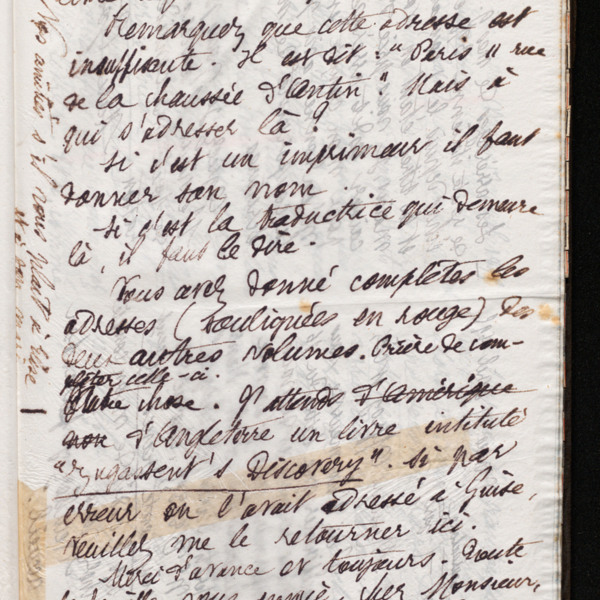 Remarquez que cette adresse est
insuffisante. Il est dit : "Paris 11 rue
de la chaussée d'antin". Mais à
qui s'adresser là ?
Si c'est un imprimeur il faut
donner son nom.
Si c'est la traductrice qui demeure
là, il faut le dire.
Vous avez donné complètes les
adresses (soulignées en rouge) des
deux autres volumes. Prière de com-
pléter celle-ci.
Autre chose. J'attends d'amérique
non d'Angleterre un livre intitulé
Discovery". Si par
erreur on l'avait adressé à Guise,
veuillez me le retourner ici.
Merci d'avance et toujours. Toute
la famille vous envie, cher Monsieur,
Nos amitiés s'il vous plait à
et à son mari